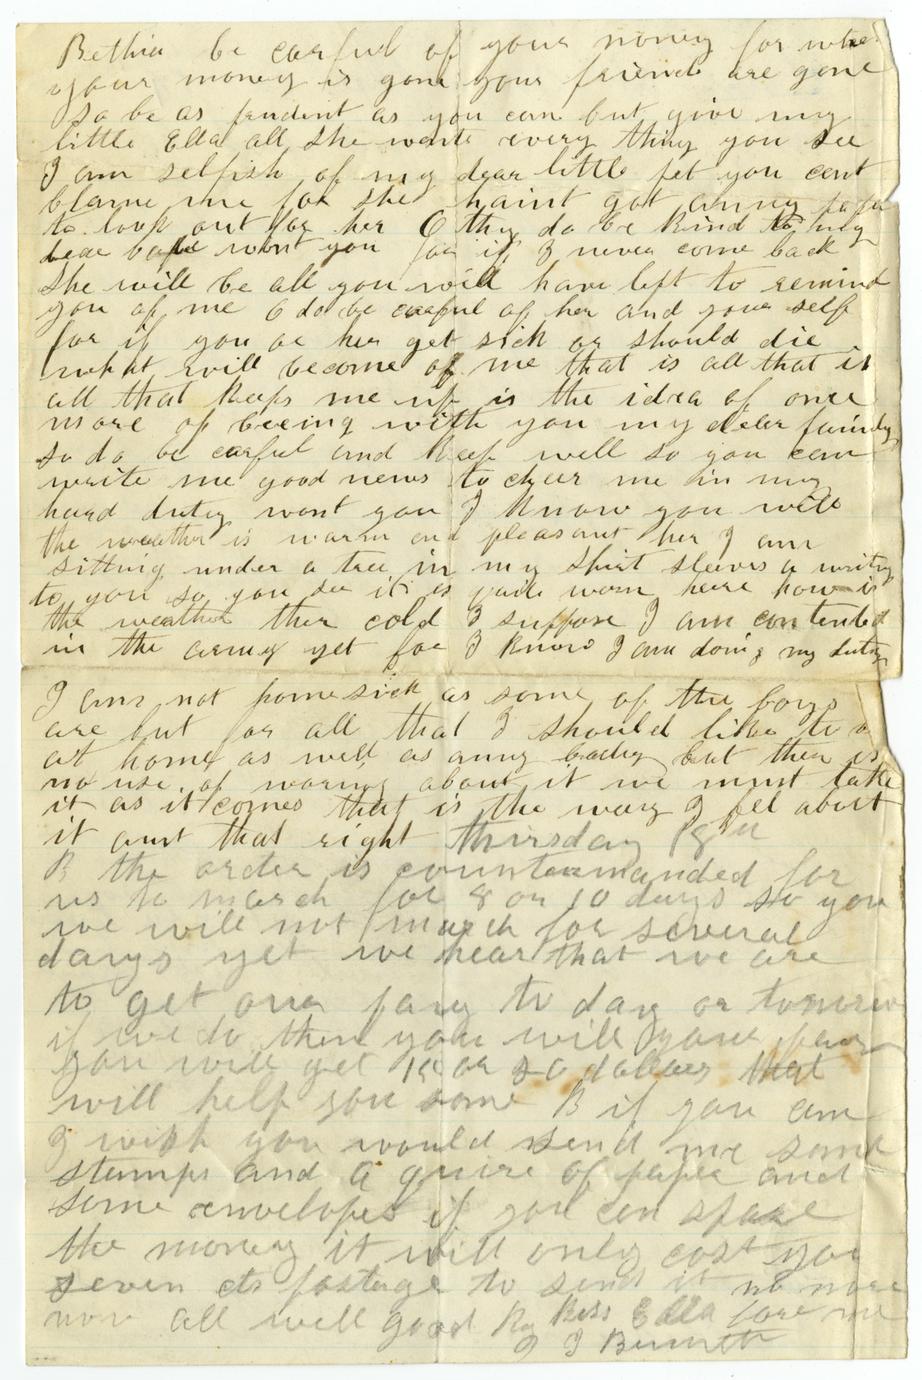 Bethia be carful of your money for when
your money is gone your friends are gone
so be as prudent as you can but give my
little Ella all she wants every thing you see
I am selfish of my dear little pet you cant
blame me for she haint got anny papa
to look out for her O thy do be kind to my
dear babe wont you for if I never come back
she will be all you will have left to remind
you of me O do be careful of her and your self
for if you or her get sick or should die
what will become of me that is all that is
all that keeps me up is the idea of once
more of beeing with you my dear family
so do be carful and keep well so you can
write me good news to cheer me in my
hard duty wont you I know you will
the weather is warm and pleasant her I am
sitting under a tree in my shirt sleeves a writing
to you so you see it is quite worm here how is
the weather ther cold I suppose I am contented
in the army yet for I know I am doing my duty
I am not homesick as some of the boys
are but for all that I should like to
at home as well as anny body but ther is
no use of woring about it we must take
it as it comes that is the way I fel about
it aint that right Thirsday 18th
B the order is countermanded for
us to march for 8 or 10 days so you
we will not march for several
days yet we hear that we are
to get our pay to day or tomorow
if we do then you will your pay
you will get 15 or 20 dollars that
will help you some B if you can
I wish you would send me some
stamps and a quire of paper and
some envelopes if you can spare
the money it will only cost you
seven cts postage to send it no more
now all well good by Kiss Ella fore me
J Burnett